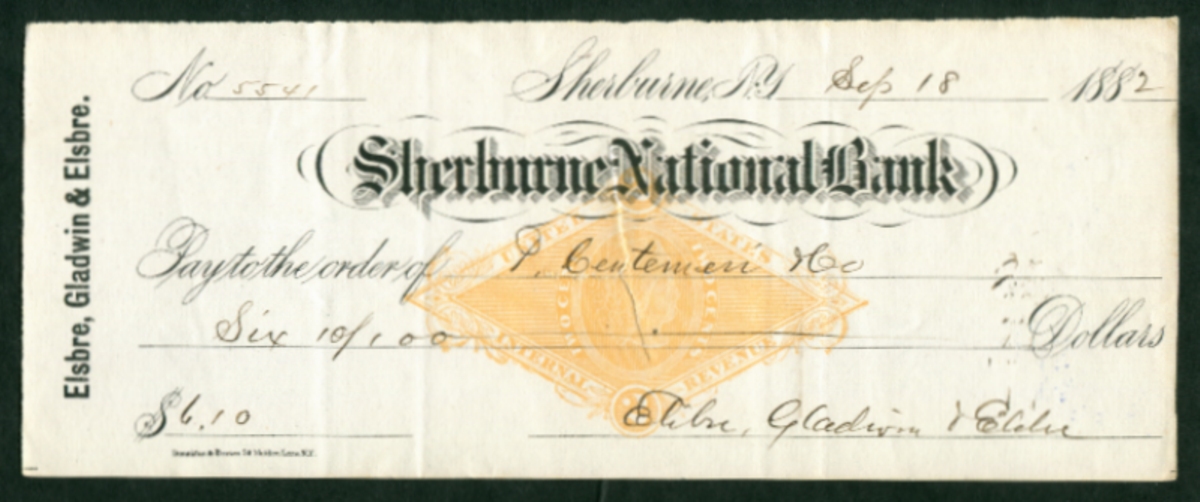 Elsbre, Gladwin & Elsbre.
No 5541 Sherburne, N.Y. Sep 18 1882
Sherburne National Bank
Pay to the order of P. Centemeri & Co
Six 10/100 Dollars
$6.10 Elsbre, Gladwin & Elsbre
UNITED STATES
INTERNAL REVENUE